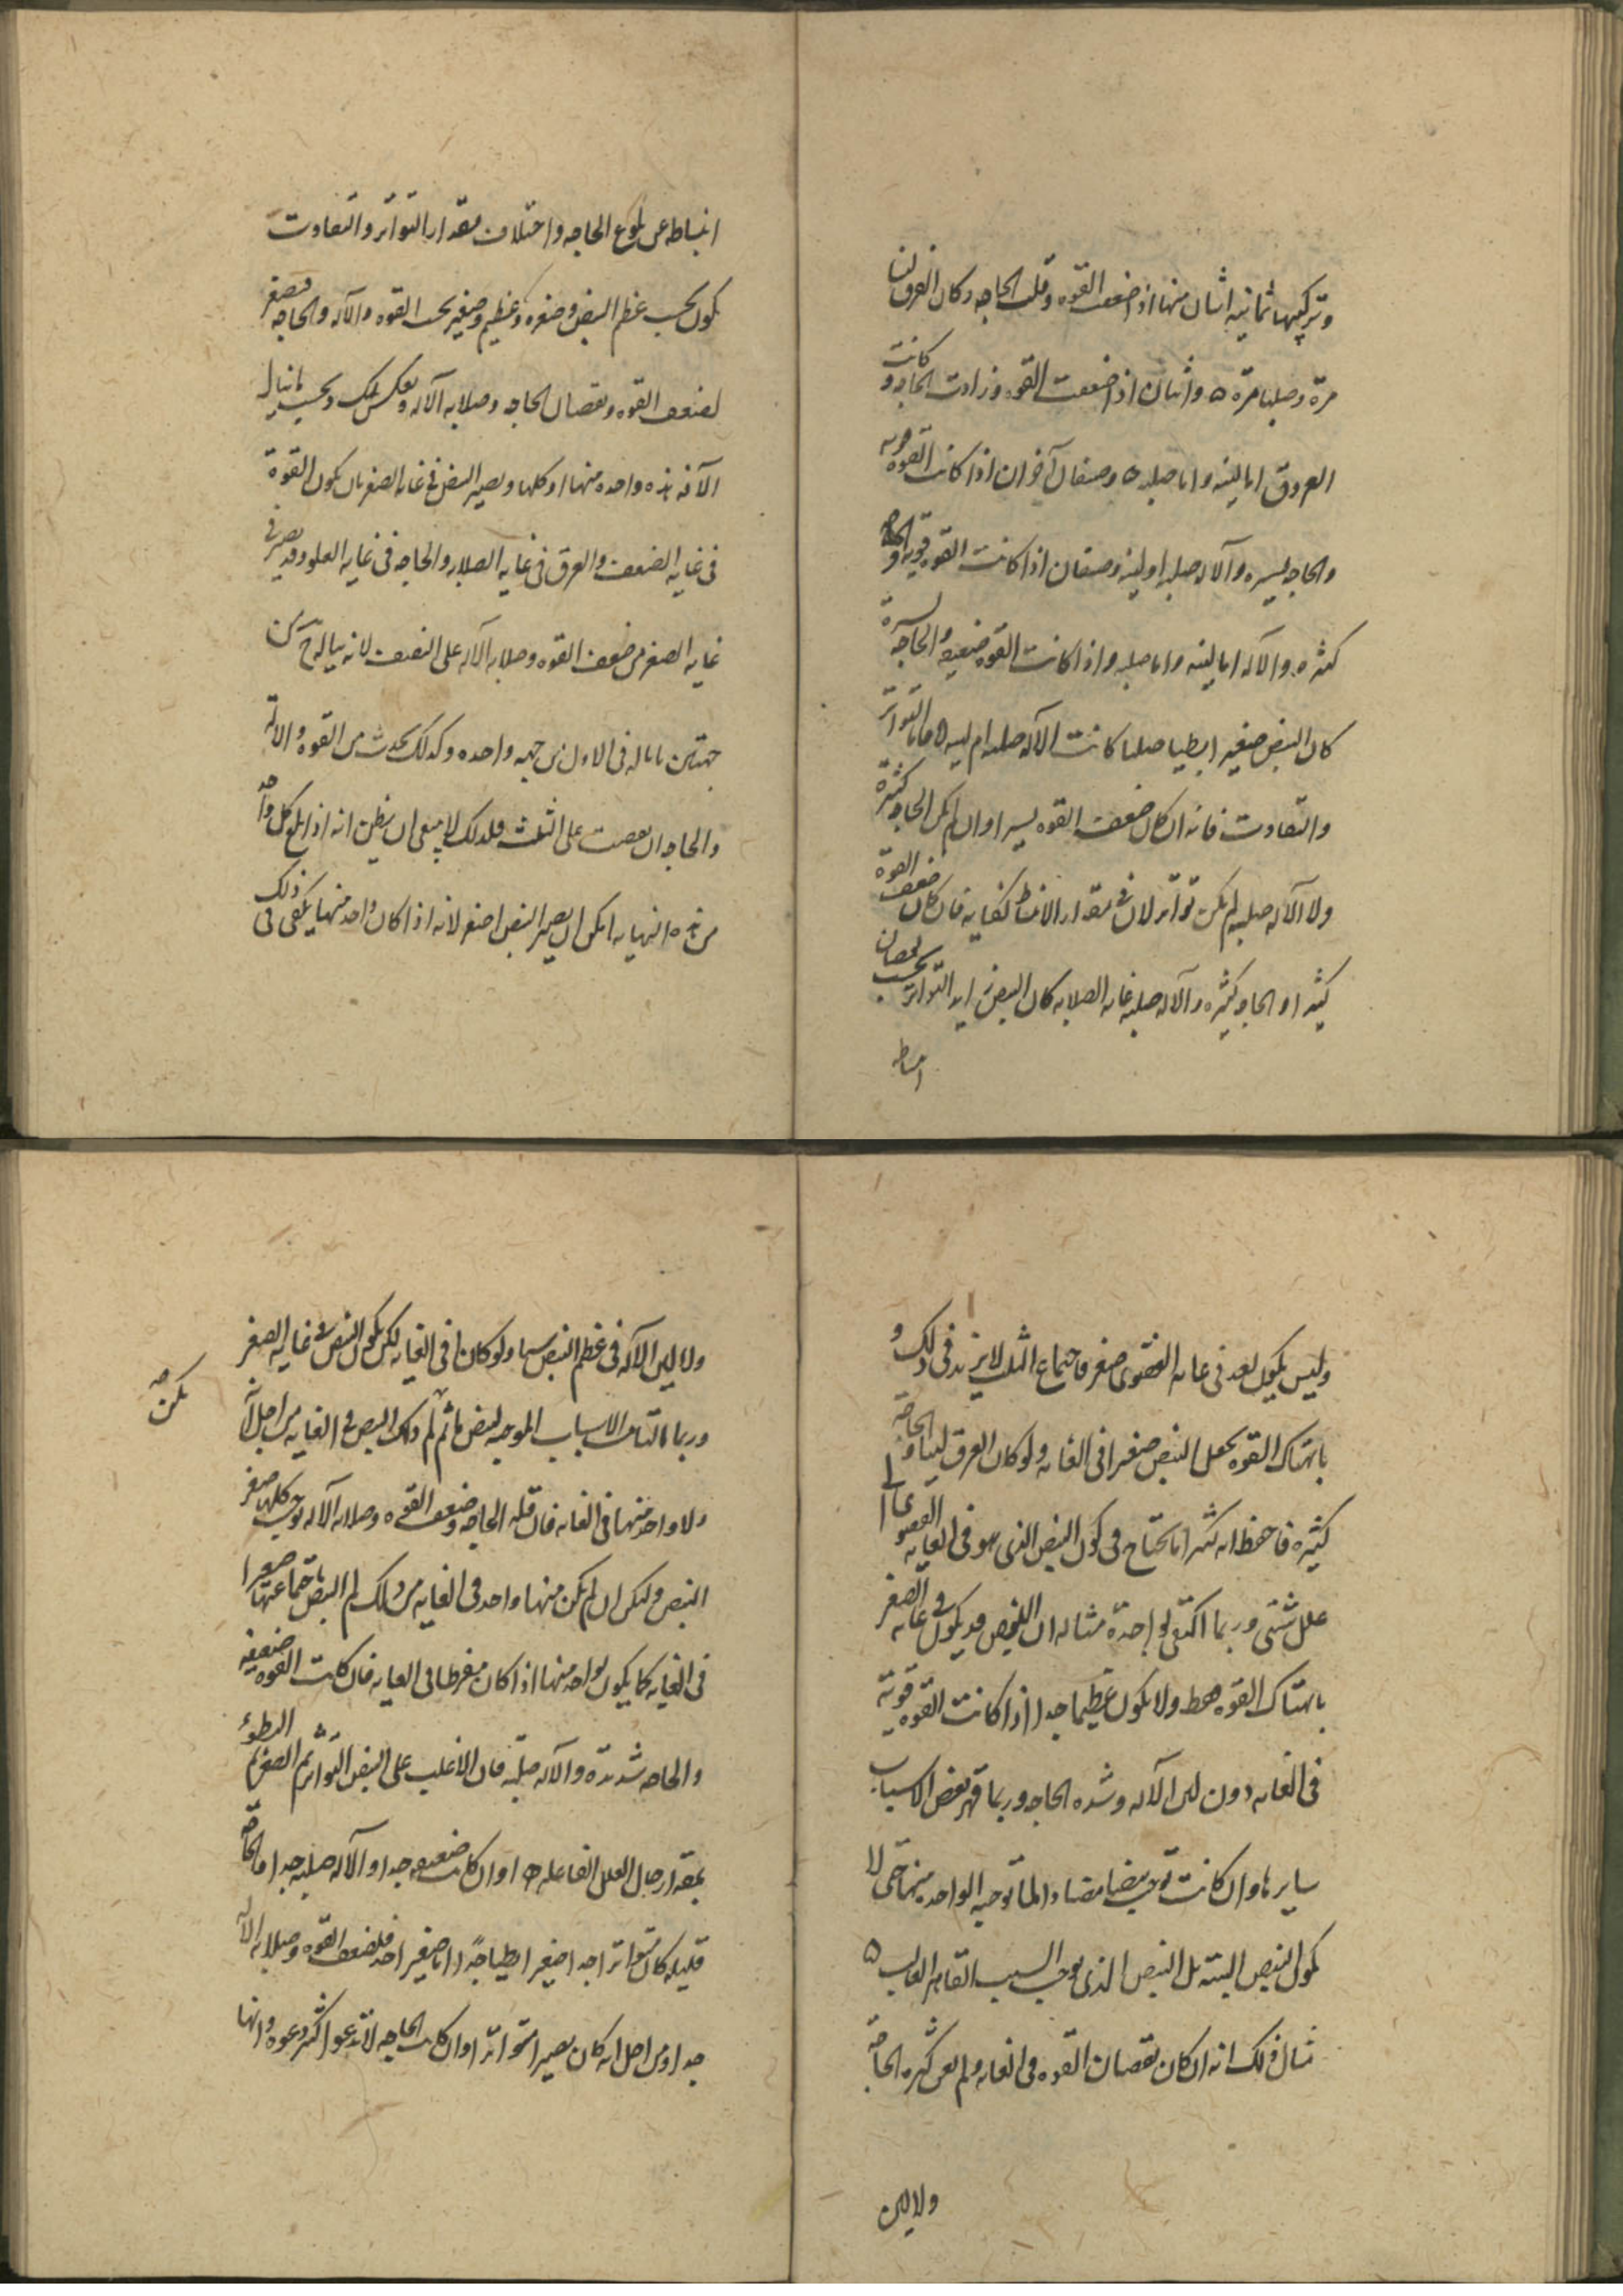 وتركيبها ثمانية اثنان منها اذا ضعفت القوه وقلت الحاجه وكان العرق لينا
مرة وصلبا مرة ه واثنان اذا ضعفت القوه وزادت الحاجه وكانت
العروق اما لينه واما صلبه ه وصنفان آخران اذا كانت القوه قويه
والحاجه يسيره والآله صلبه او لينه وصنفان اذا كانت القوه قويه والحاجه
كثره والاله اما لينه واما صلبه واذا كانت القوه ضعيفه والحاجه يسيرة
كان النبض صغيرا بطيا صلبا كانت الآله صلبه ام لينه ه فاما التواتر
والتفاوت فانه ان كان ضعف القوه يسيرا وان لم يكن الحاجه كثيرة
ولا الآله صلبه لم يكن تواتر لان في مقدار الانبساط كفايه فان كان ضعف القوة
كثيرا والحاجه كثيره والاله صلبه غايه الصلابه كان النبض زايد التواتر بحسب نقصان
انبساطه
انبساطه عن بلوغ الحاجه واختلاف مقدار التواتر والتفاوت
يكون بحسب عظم النبض وصغره وعظيم وصغير بحسب القوه والآله والحاجه فصغير
لضعف القوه ونقصان الحاجه وصلابه الآله وبعكس ذلك وبحسب ما ينال
الآفه هذه واحده منها او كلها ويصير النبض في غايه الصغر بان يكون القوة
في غايه الضعف والعرق في غايه الصلابه والحاجه في غايه العلو وقد يصير في
غايه الصغر من ضعف القوه وصلابه الآله على النصف لانه يناله ح من
جهتين ما ناله في الاول من جهه واحده وكذلك يحدث من القوه والاله
والحاجه ان نقصت على الثلث فلذلك لا ينبغي ان يظن انه اذا بلغ كل واحد
من هذه النهايه امكن ان يصير النبض اصغر لانه اذا كان واحد منها يكفي في ذلك
وليس يكون بعد في غايه القصوى صغر فاجتماع الثلث لا يزيد في ذلك و
بانهتاك القوه يجعل النبض صغيرا في الغايه ولو كان العرق لينا والحاجة
كثيره فاحفظ انه كثيرا ما يحتاج في كون النبض الذي هو في الغايه القصوى الى
علل شتى وربما اكتفى بواحدة مثاله ان النبض قد يكون في غايه الصغر
بانهتاك القوه فقط ولا يكون عظيما جدا اذا كانت القوه قوية
في الغايه دون لين الآله وشده الحاجه وربما قهر بعض الاسباب
سايرها وان كانت توجب نبضا مضادا لما توجبه الواحده منها حتى لا
يكون النبض البته بل النبض الذي يوجبه السبب القاهر الغالب ه
مثال ذلك انه ان كان نقصان القوه في الغايه ولم يعن كثره الحاجة
ولا لين
ولا لين الآله في عظم النبض شيا ولو كانا في الغايه لكن يكون النبض في غايه الصغر
وربما تالفت الاسباب الموجبه لنبض ما ثم لم يكن ذلك النبض في الغايه من اجل ان
يكن صح
ولا واحد منها في الغايه فان قله الحاجه وضعف القوه وصلابه الآله يوجب كلها صغر
النبض ولكن ان لم يكن منها واحد في الغايه من ذلك لم النبض باجتماعها صغيرا
في الغايه كما يكون بواحد منها اذا كان مفرطا في الغايه فان كانت القوه ضعيفه
والحاجه شديدة والآله صلبه فان الاغلب على النبض التواتر ثم الصغر ثم البطوء
بمقدار حال العلل الفاعله ه وان كانت ضعيفه جدا والآله صلبه جدا والحاجة
قليله كان متواترا جدا صغيرا بطيا جدا اما صغيرا جدا فلضعف القوه وصلابه الآله
جدا ومن اجل انه كان يصير متواترا وان كانت الحاجه لا تدعو اكثر دعوه وانها